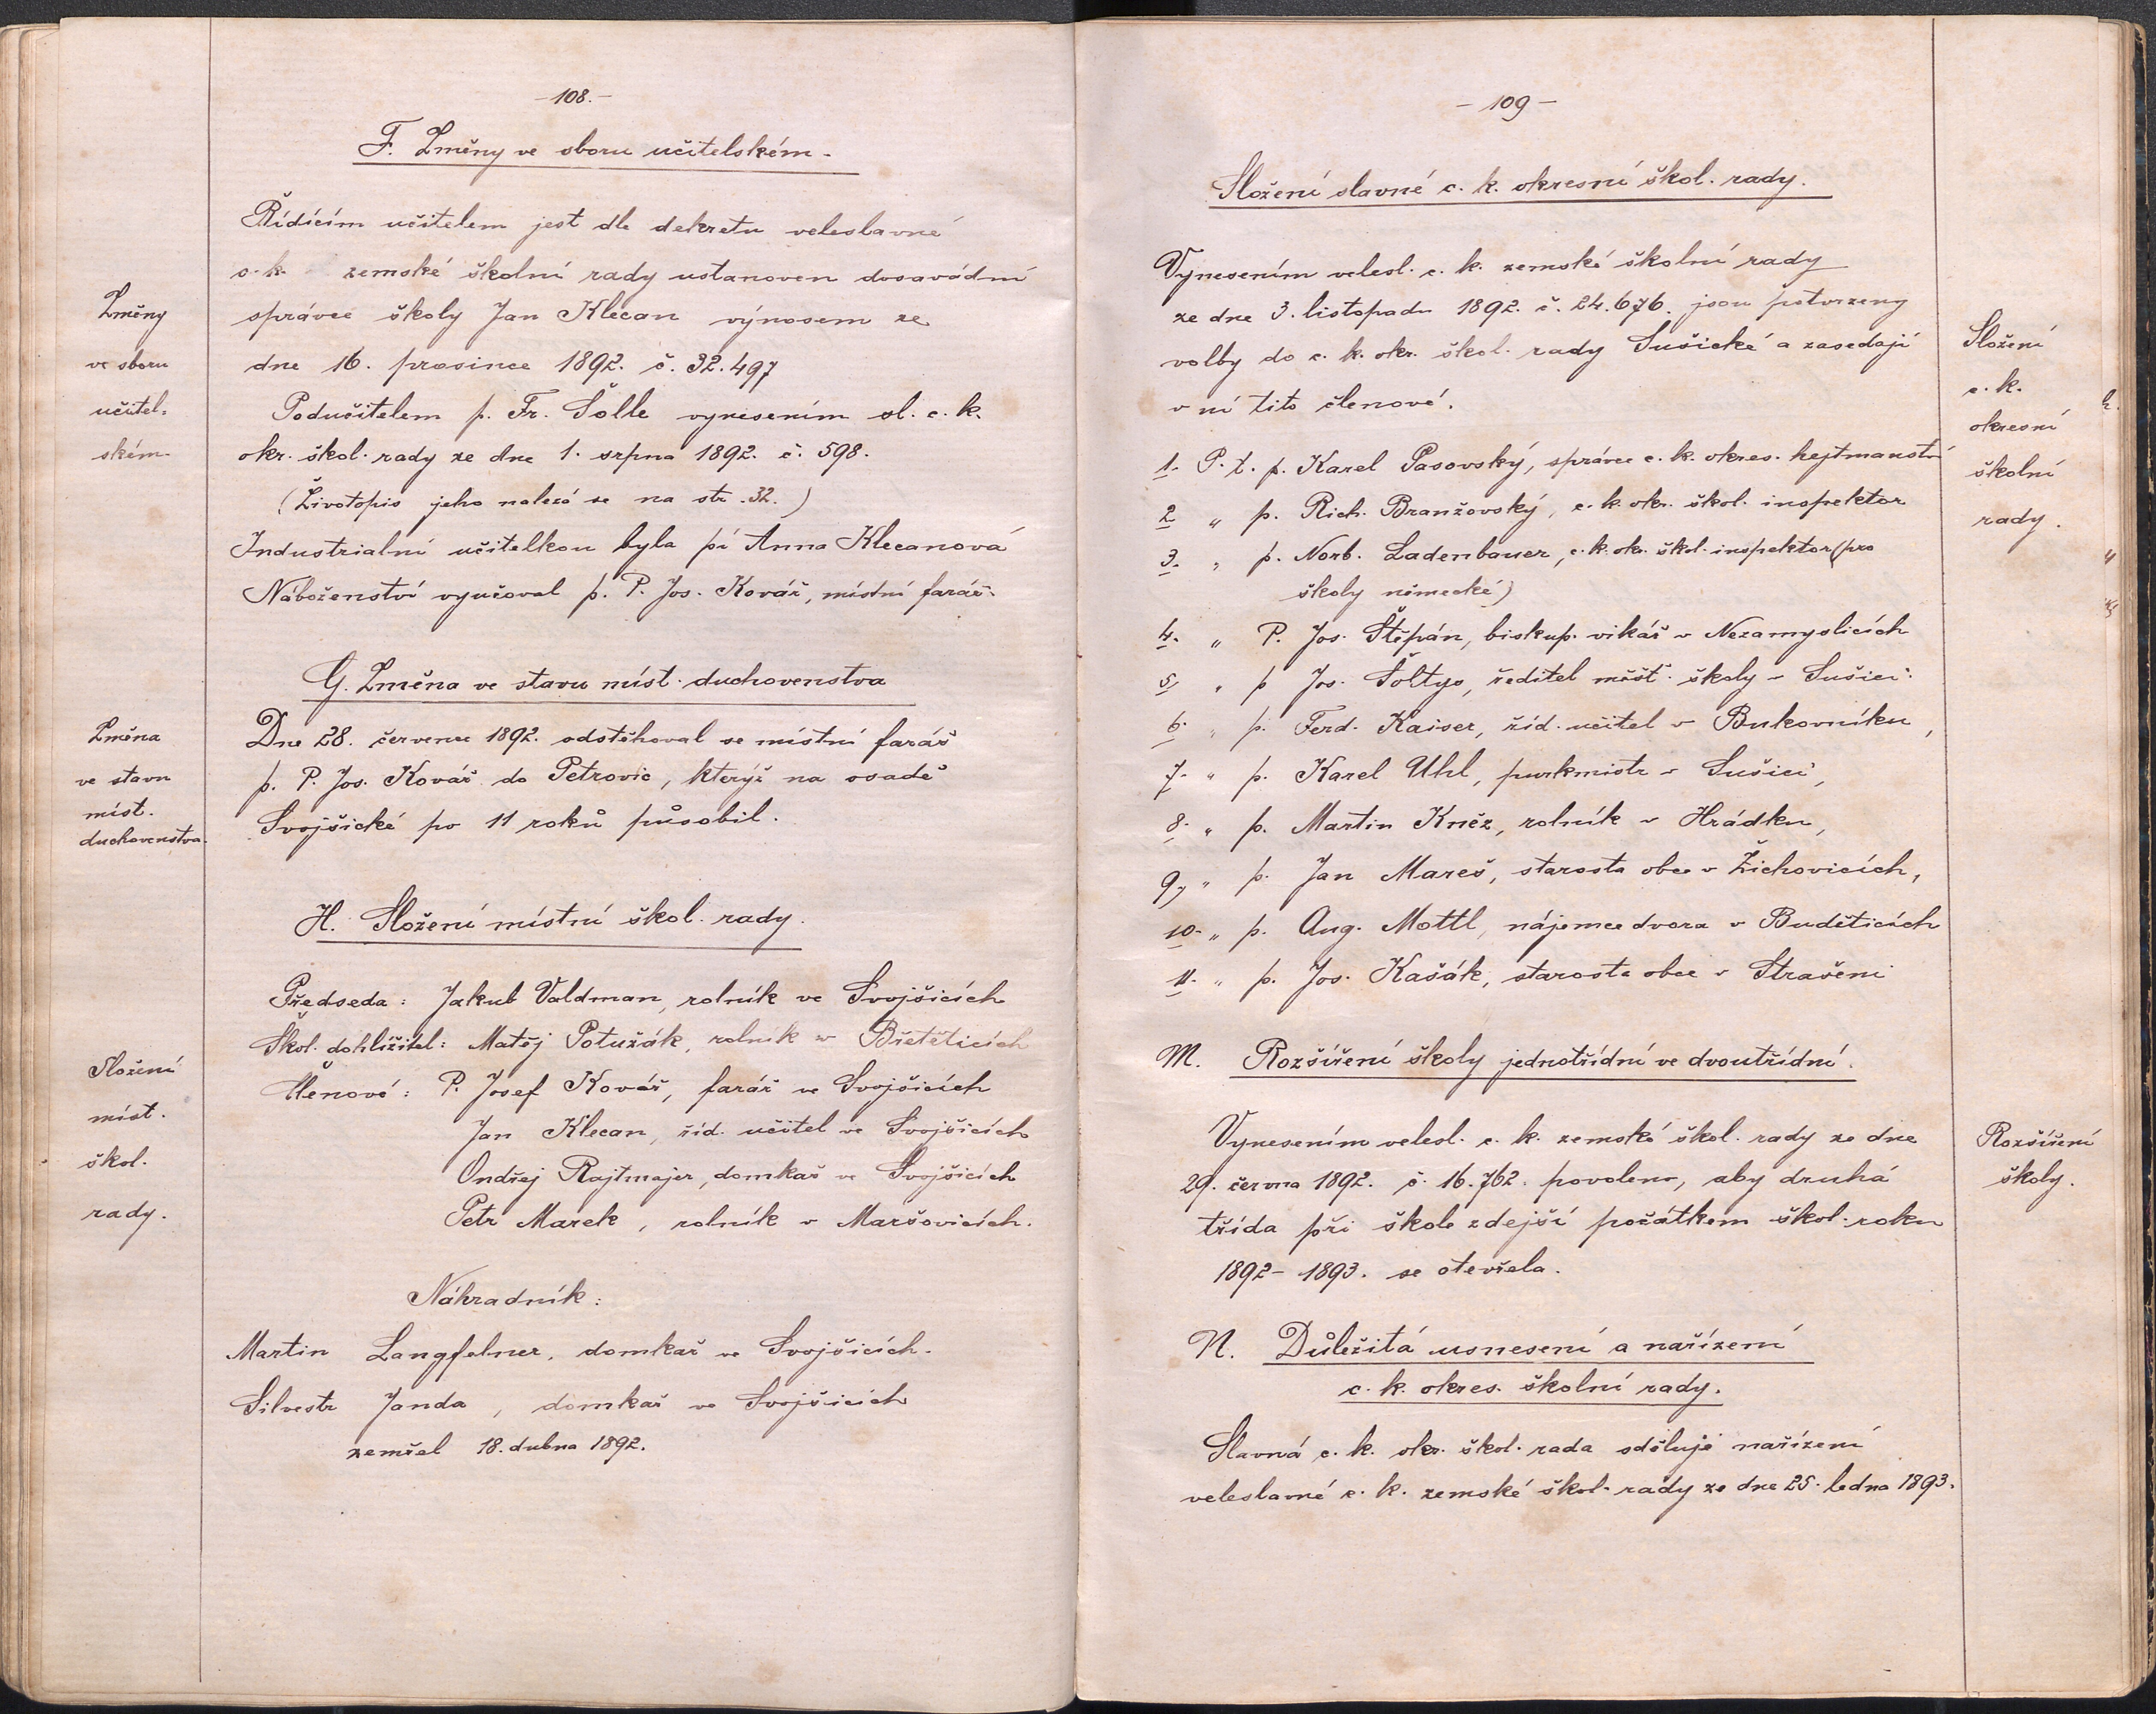 -108.-
F. Změny ve sboru učitelském.
Řídícím učitelem jest dle dekretu veleslavné
c. k. zemské školní rady ustanoven dosavádní
správce školy Jan Klecan výnosem ze
dne 16. prosince 1892. č. 32.497
Podučitelem p. Fr. Šolle vynesením sl. c. k.
okr. škol. rady ze dne 1. srpna 1892. č. 598.
(Životopis jeho nalezá se na str. 32.)
Industrialní učitelkou byla pí Anna Klecanová
Náboženství vyučoval p. P. Jos. Kovář, místní farář.
Změny
ve sboru
učitel-
ském.
G. Změna ve stavu míst. duchovenstva
Dne 28. července 1892. odstěhoval se místní farář
p. P. Jos. Kovář do Petrovic, kterýž na osadě
Svojšické po 11 roků působil.
Změna
ve stavu
míst.
duchovenstva.
H. Složení místní škol. rady.
Předseda: Jakub Valdman, rolník ve Svojšicích
Škol. dohlížitel: Matěj Potužák, rolník v Břetěticích
Členové: P. Josef Kovář, farář ve Svojšicích
Jan Klecan, říd. učitel ve Svojšicích
Ondřej Rajtmajer, domkař ve Svojšicích
Petr Marek, rolník v Maršovicích.
Složení
míst.
škol.
rady.
Náhradník:
Martin Langfelner, domkař ve Svojšicích.
Silvestr Janda, domkař ve Svojšicích
zemřel 18. dubna 1892.
- 109 -
Složení slavné c. k. okresní škol. rady.
Vynesením velesl. c. k. zemské školní rady
ze dne 3. listopadu 1892. č. 24.676. jsou potvrzeny
volby do c. k. okr. škol. rady Sušické a zasedají
v ní tito členové.
1. P. t. p. Karel Pasovský, správce c. k. okres. hejtmanství
2 " p. Rich. Branžovský, c. k. okr. škol. inspektor
3. " p. Norb. Ladenbauer, c. k. okr. škol. inspektor (pro
školy německé)
4. " P. Jos. Štěpán, biskup. vikář v Nezamyslicích
5, " p Jos. Šoltys, ředitel měšť. školy v Sušici.
6. " p. Ferd. Kaiser, říd. učitel v Bukovníku,
7. " p. Karel Uhl, purkmistr v Sušici,
8. " p. Martin Kněz, rolník v Hrádku,
9, " p. Jan Mareš, starosta obce v Žichovicích,
10. " p. Aug. Mottl, nájemce dvora v Buděticích
11. " p. Jos. Kašák, starosta obce v Strašeni
Složení
c. k.
okresní
školní
rady.
M. Rozšíření školy jednotřídní ve dvoutřídní.
Vynesením velesl. c. k. zemské škol. rady ze dne
29. června 1892. č. 16.762. povoleno, aby druhá
třída při škole zdejší počátkem škol. roku
1892- 1893. se otevřela.
Rozšíření
školy.
N. Důležitá usnesení a nařízení
c. k. okres. školní rady.
Slavná c. k. okr. škol. rada sděluje nařízení
veleslavné c. k. zemské škol. rady ze dne 25. ledna 1893.